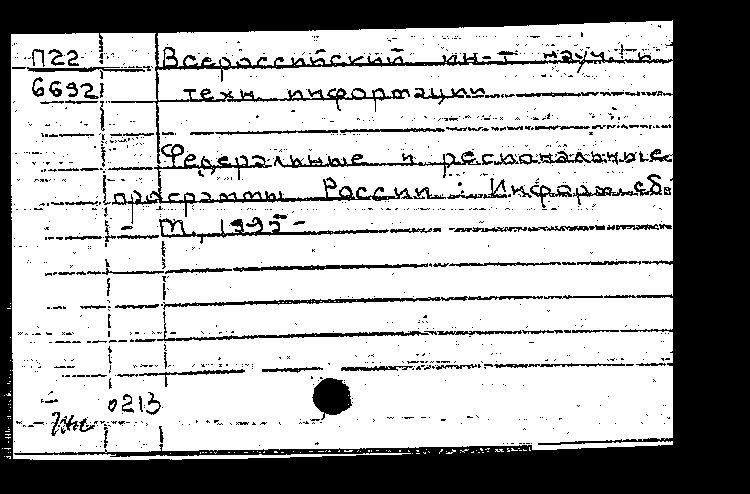 П22 Всероссийский ин-т науч. и
6692 техн. информации
Федеральные и региональные
программы России : Информ. сб.
- М, 1995 -
0213